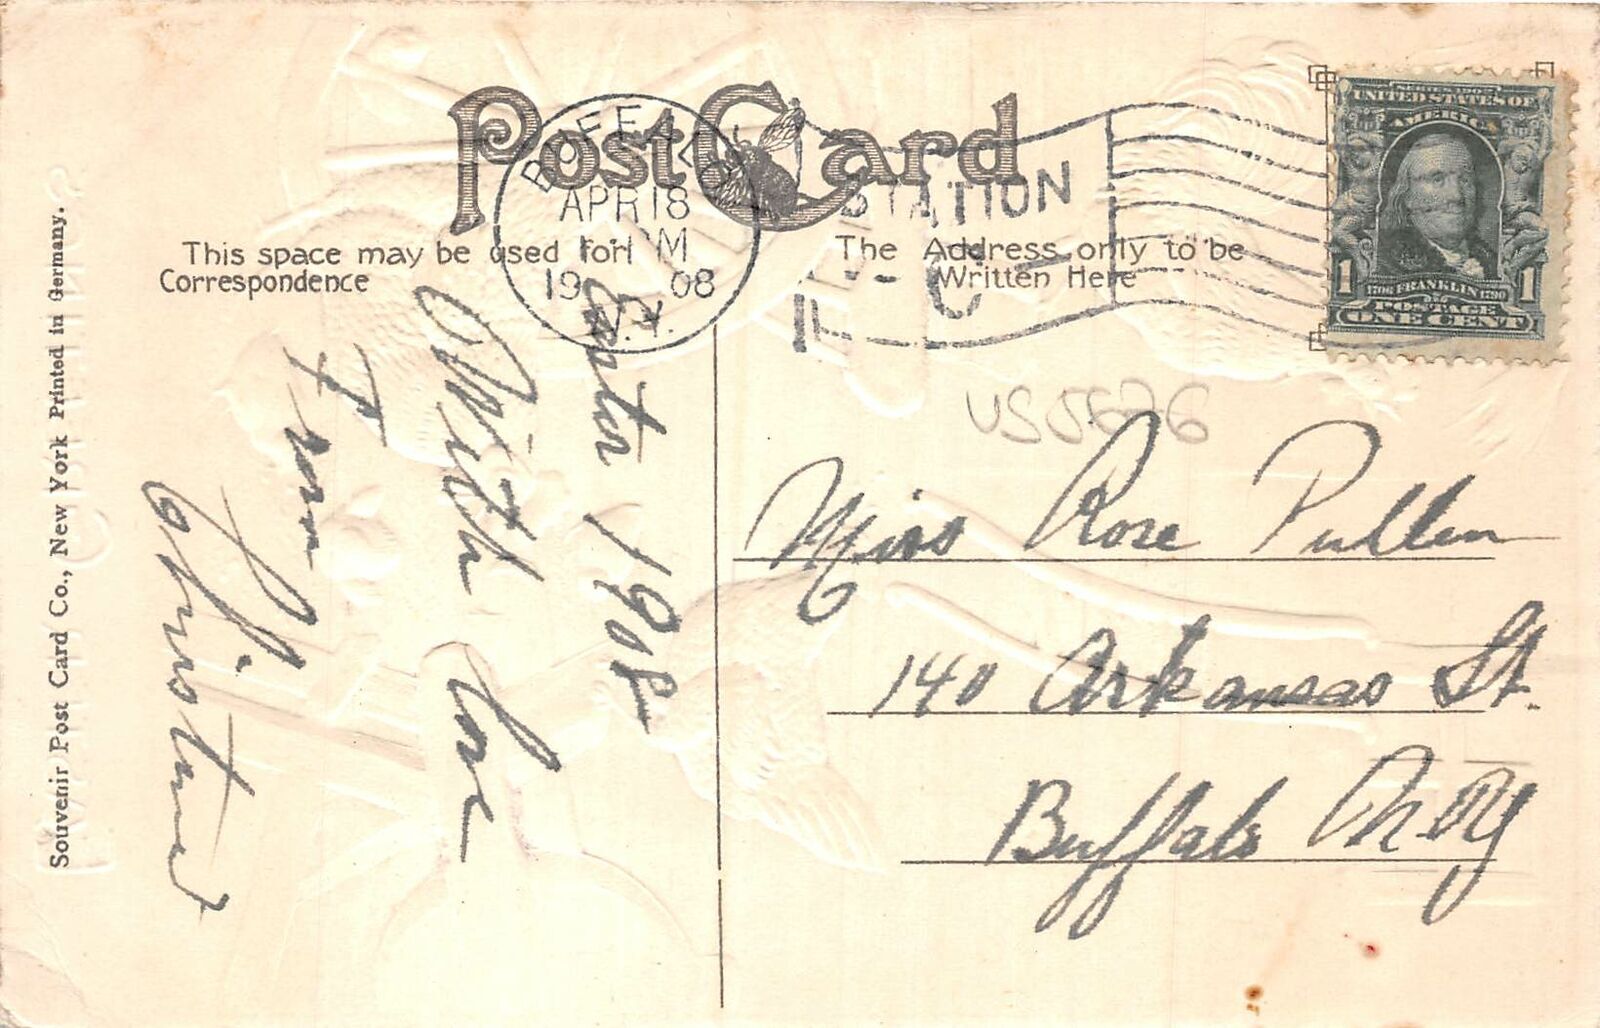 Post Card
This space may be used for
Correspondence
The Address only to be
Written Here
BUFFALO
APR 18
M
1908
N.Y.
STATION
C
SERIES 1902
UNITED STATES OF
AMERICA
1706 FRANKLIN 1790
POSTAGE
1 ONE CENT 1
US5626
Easter 1908
With love
From
Christina
Miss Rose Pullen
140 Arkansas St.
Buffalo N.Y.
Souvenir Post Card Co., New York Printed in Germany.